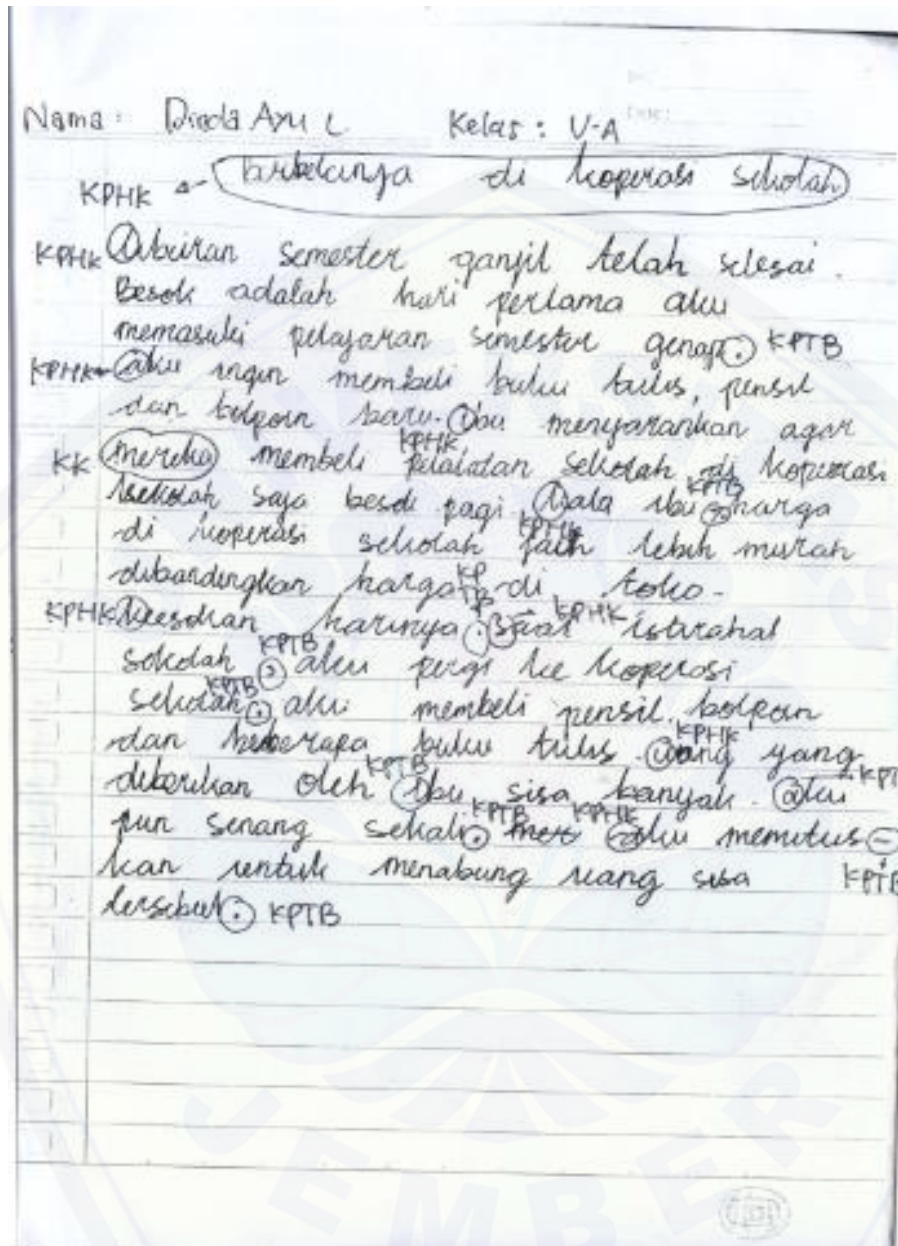 Nama : Dinda Ayu L Kelas : V-A
KPHK berbelanja di koperasi sekolah
KPHK liburan semester ganjil telah selesai.
Besok adalah hari pertama aku
memasuki pelajaran semester genap. KPTB
KPHK aku ingin membeli buku tulis, pensil
dan bolpoin baru. ibu menyarankan agar
KPHK
KK mereka membeli pelalatan sekolah di koperasi
KPTB
sekolah saja besok pagi kata ibu harga
KPHK
di koperasi sekolah jauh lebih murah
KP
TB
dibandingkan harga di toko.
KPHK keesokan harinya. saat KPHK istirahat
KPTB
sekolah, aku pergi ke koperasi
KPTB
sekolah. aku membeli pensil, bolpoin
KPHK
dan beberapa buku tulis. uang yang
KPTB KPT
diberikan oleh ibu sisa banyak. aku
KPTB KPHK
pun senang sekali. aku memutus-
kan untuk menabung uang sisa KPTB
tersebut. KPTB
JEMBER